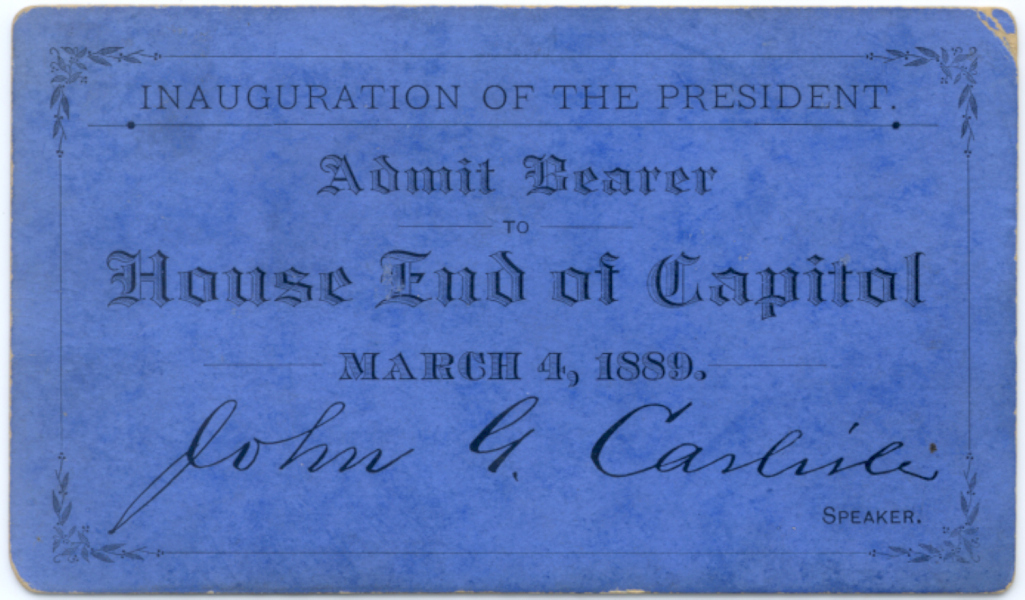 INAUGURATION OF THE PRESIDENT.
Admit Bearer
TO
House End of Capitol
MARCH 4, 1889.
John G. Carlisle
SPEAKER.